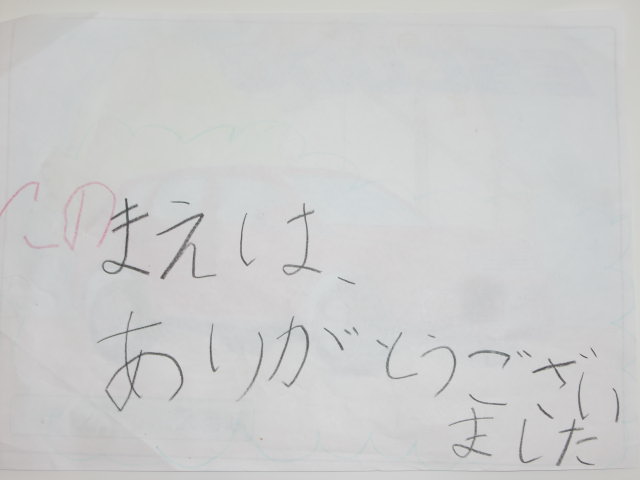 このまえは、
ありがとうござい
ました